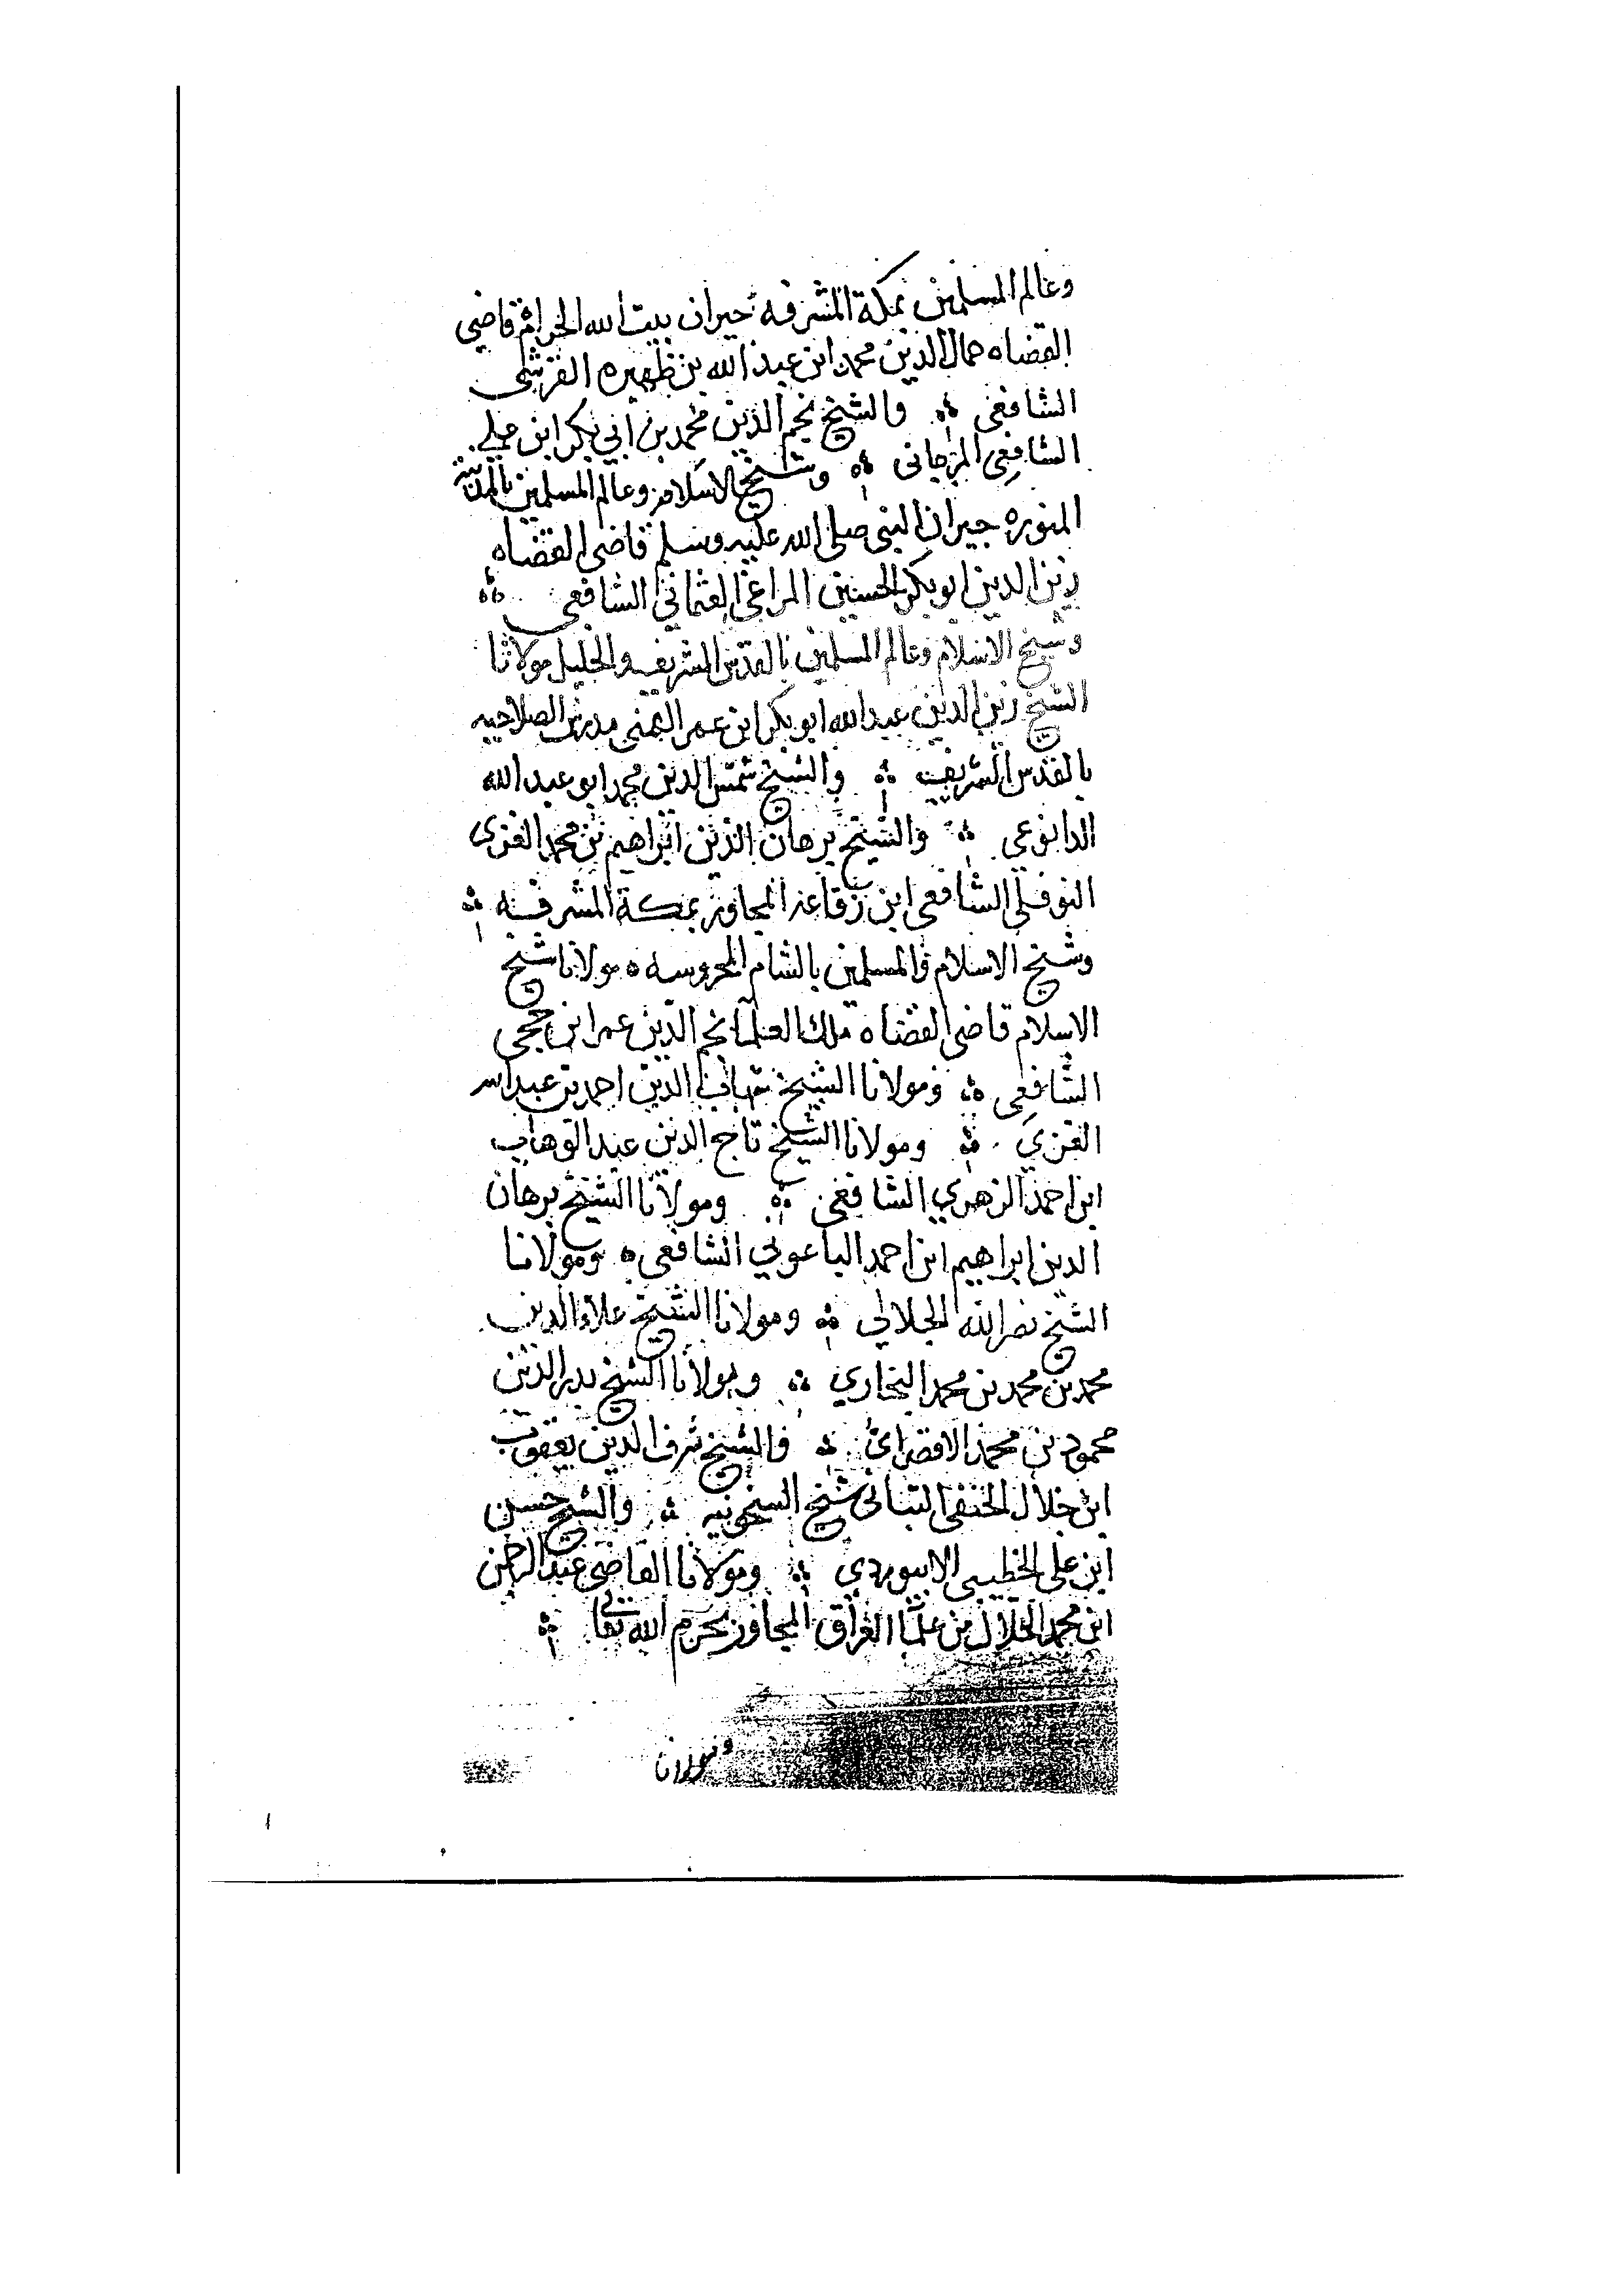 وعالم المسلمين بمكة المشرفه جيران بيت الله الحرام قاضي
القضاه جمال الدين محمد ابن عبد الله بن ظهيره القرشى
الشافعى ۞ والشيخ نجم الدين محمد بن ابي بكر ابن علي
الشافعى المرجانى ۞ وشيخ الاسلام وعالم المسلمين بالمدينة
المنوره جيران النبى صلى الله عليه وسلم قاضى القضاه
زين الدين ابو بكر الحسين المراغى العثمانى الشافعى ۞
وشيخ الاسلام وعالم المسلمين بالقدس الشريف والخليل مولانا
الشيخ زين الدين عبد الله ابو بكر ابن عمر اليمنى مدرس الصلاحيه
بالقدس الشريف ۞ والشيخ شمس الدين محمد ابو عبد الله
الدابوعي ۞ والشيخ برهان الدين ابراهيم بن محمد الغزى
النوفلى الشافعى ابن زقاعه المجاور بمكة المشرفه ۞
وشيخ الاسلام والمسلمين بالشام المحروسه ه مولانا شيخ
الاسلام قاضى القضاه ملك العلما نجم الدين عمر ابن حجى
الشافعى ۞ ومولانا الشيخ شهاب الدين احمد بن عبد الله
الغزي ۞ ومولانا الشيخ تاج الدين عبد الوهاب
ابن احمد الزهري الشافعى ۞ ومولانا الشيخ برهان
الدين ابراهيم ابن احمد الباعوني الشافعى ه ومولانا
الشيخ نصر الله الجلالي ۞ ومولانا الشيخ علاء الدين
محمد بن محمد بن محمد البخاري ۞ ومولانا الشيخ بدر الدين
محمود بن محمد الاقصرائ ۞ والشيخ شرف الدين يعقوب
ابن جلال الحنفى التبانى شيخ الشيخونيه ۞ والشيخ حسن
ابن على الخطيبى الابيوردي ۞ ومولانا القاضى عبد الرحمن
ابن محمد الخلال من علما العراق المجاور بحرم الله تعالى ۞
ومولانا